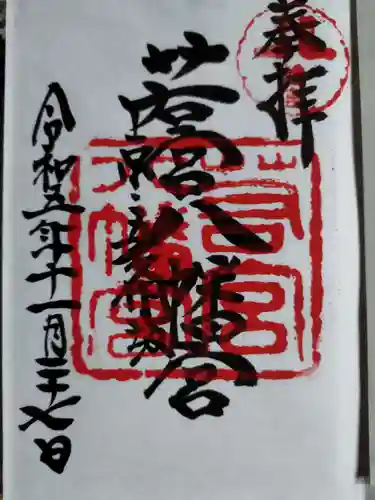 奉拝
若宮八幡宮
若宮
八幡宮
令和五年十一月二十七日